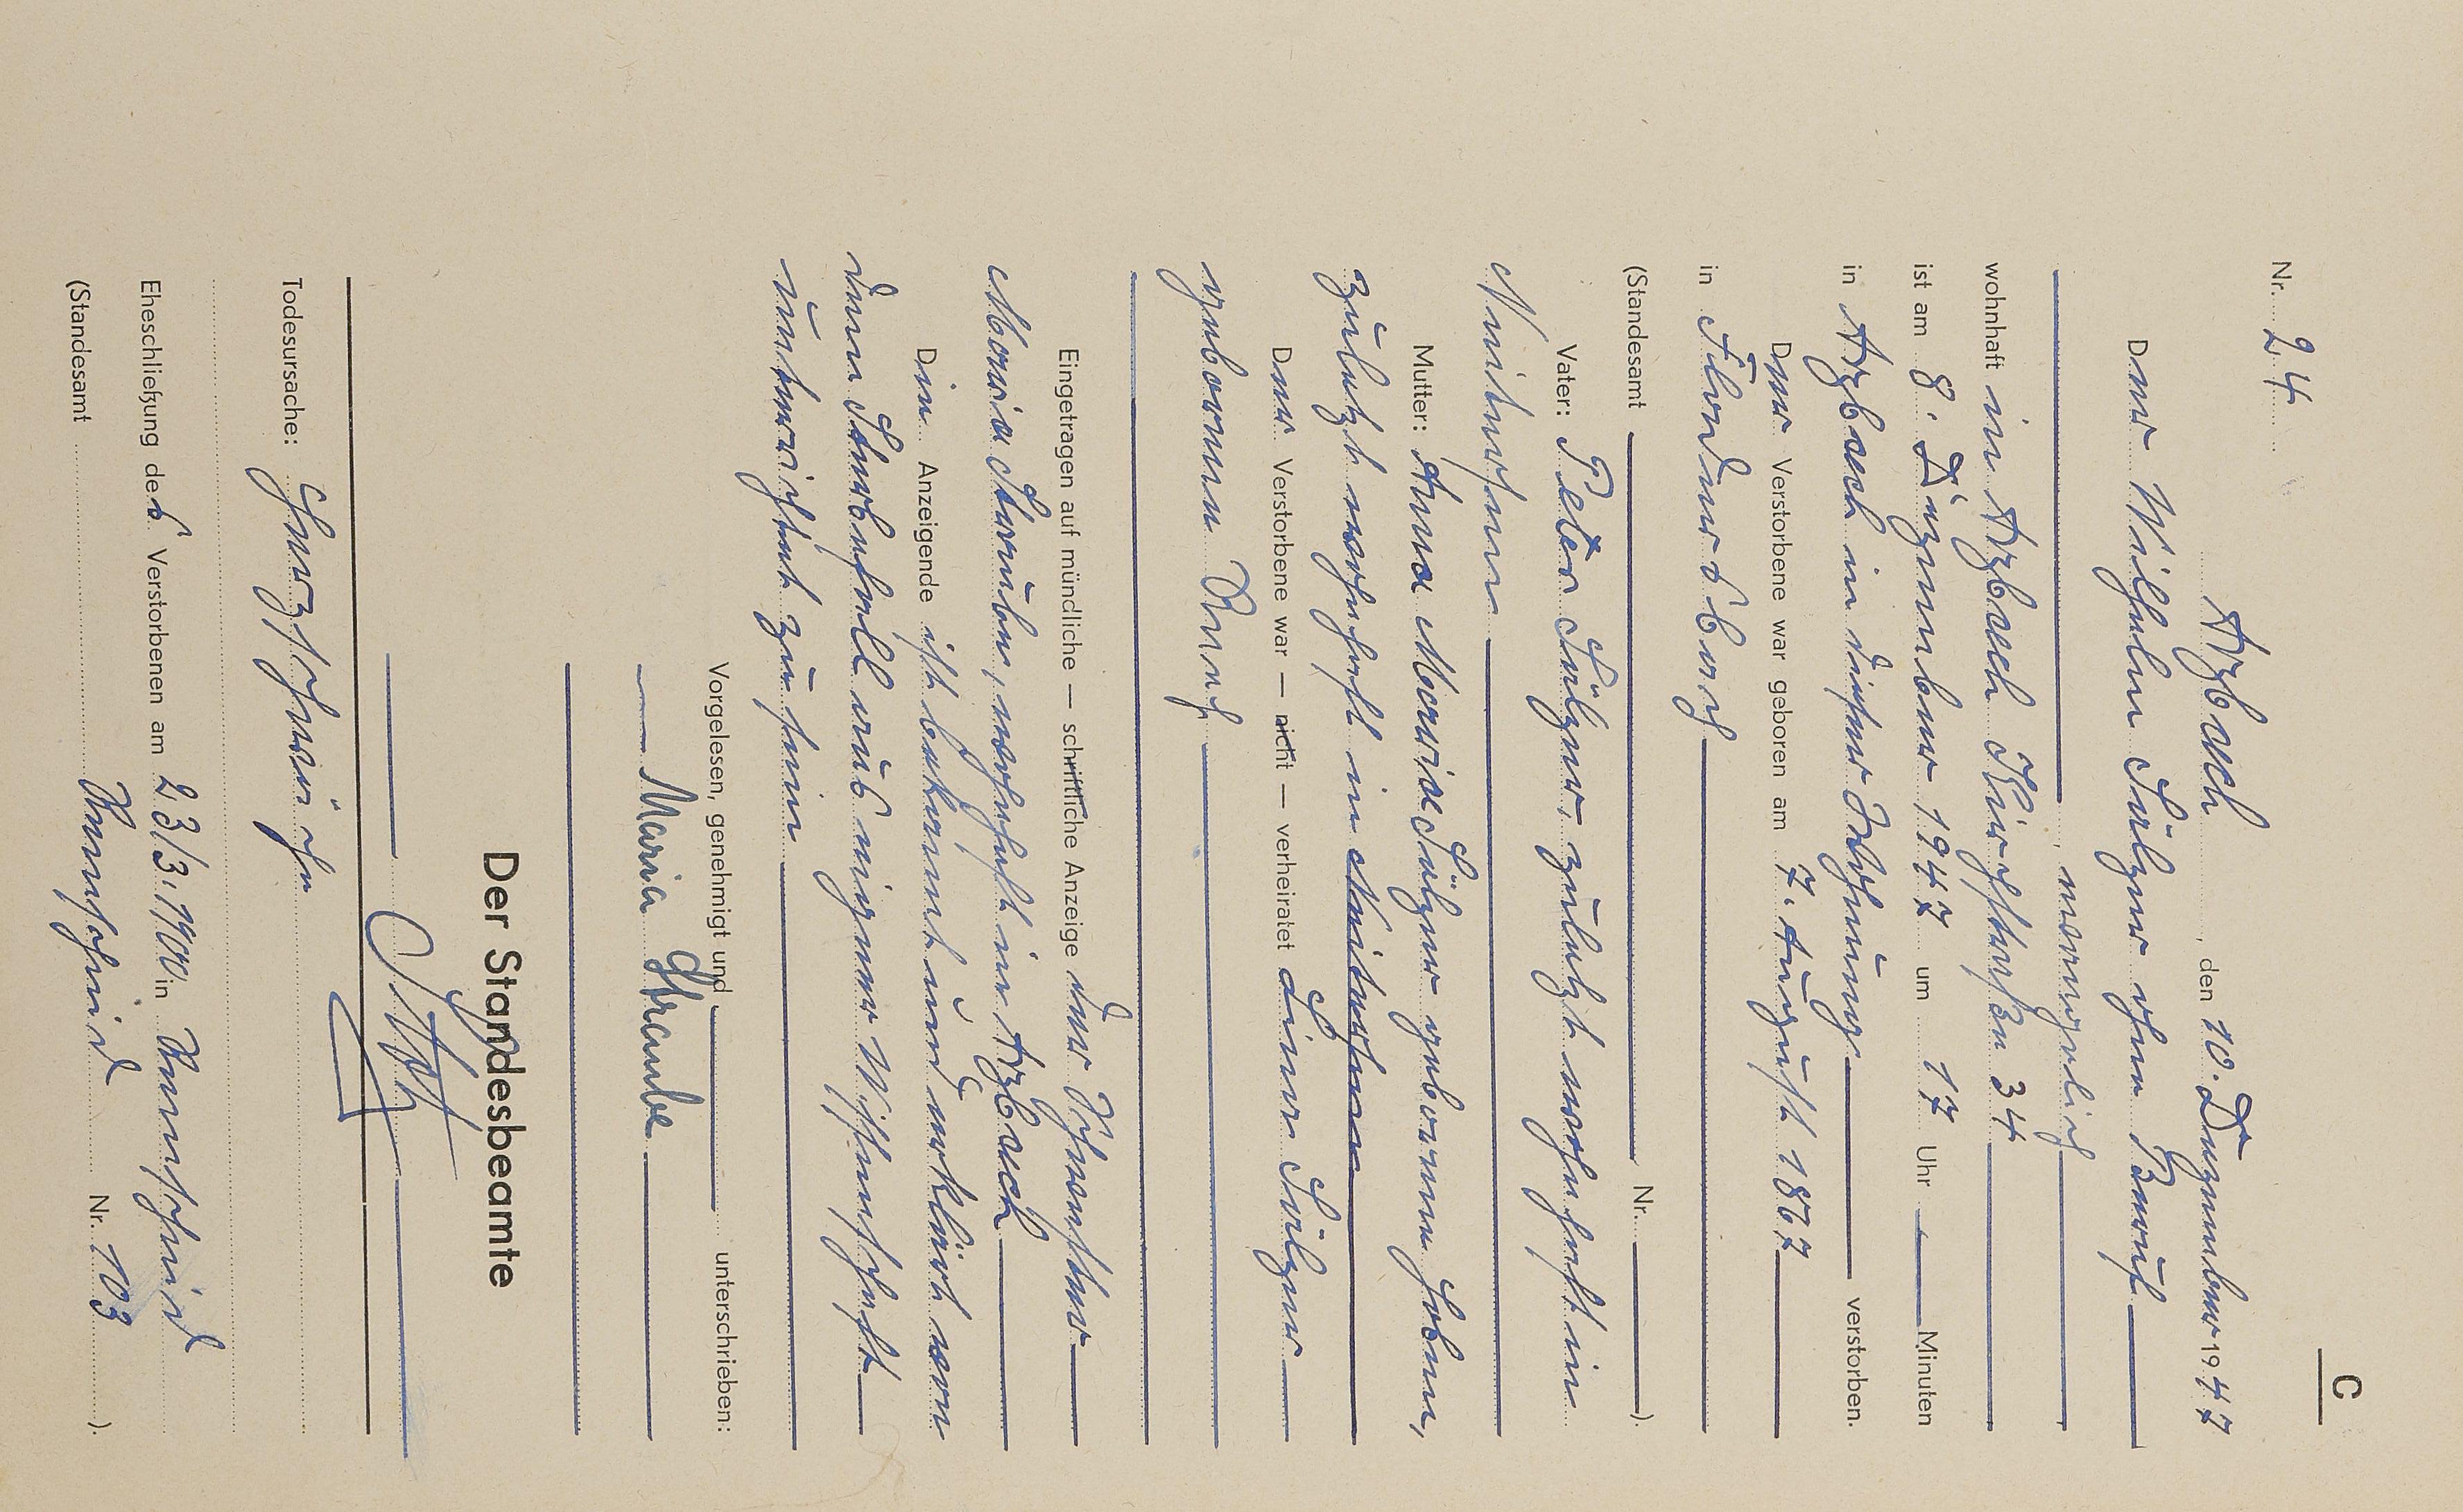 C
Nr. 24
Arzbach, den 10. Dezember 1947
Der Wilhelm Sülzner ohne Beruf
, evangelisch
wohnhaft in Arzbach Kirchstraße 34
ist am 8. Dezember 1947 um 17 Uhr Minuten
in Arzbach in dieser Wohnung verstorben.
Der Verstorbene war geboren am 7. August 1867
in
(Standesamt Nr. ).
Vater: Peter Sülzner, zuletzt wohnhaft in
Mutter: Anna Maria Sülzner geborene
zuletzt wohnhaft in
Der Verstorbene war — nicht — verheiratet
geborenen
Eingetragen auf mündliche — schriftliche Anzeige der
Maria Straube, wohnhaft in Arzbach
Die Anzeigende ist bekannt und erklärt von
dem Sterbefall aus eigener Wissenschaft
unterrichtet zu sein
Vorgelesen, genehmigt und unterschrieben:
Maria Straube
Der Standesbeamte
Todesursache: Herzschwäche
Eheschließung des Verstorbenen am 23/3.1900 in Remscheid
(Standesamt Remscheid Nr. 103 ).